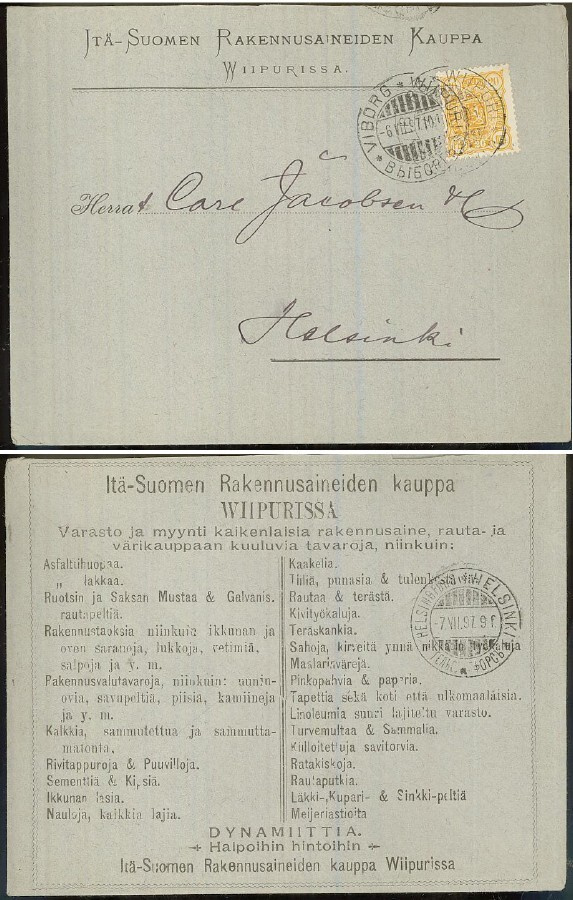 ITÄ-SUOMEN RAKENNUSAINEIDEN KAUPPA
WIIPURISSA.
VIBORG * WIIPURI
-6 VII.97
* ВЫБОРГ
Herrat Carl Jacobsen & C
Helsinki
Itä-Suomen Rakennusaineiden kauppa
WIIPURISSA
Varasto ja myynti kaikenlaisia rakennusaine, rauta- ja
värikauppaan kuuluvia tavaroja, niinkuin:
Asfaltihuopaa.
„ lakkaa.
Ruotsin ja Saksan Mustaa & Galvanis.
rautapeltiä.
Rakennustaoksia niinkuin ikkunan ja
oven saranoja, lukkoja, hetimiä,
salpoja ja y. m.
Rakennusvalutavaroja, niinkuin: uunin-
ovia, savupeltiä, piisiä, kamiineja
ja y. m.
Kalkkia, sammutettua ja sammutta-
matonta,
Rivitappuroja & Puuvilloja.
Sementtiä & Kipsiä.
Ikkunan lasia.
Nauloja, kaikkia lajia.
Kaakelia.
Tiiliä, punasia & tulenkestäviä
Rautaa & terästä.
Kivityökaluja.
Teräskankia.
Sahoja, kirveitä ynnä työkaluja
Maalarivärejä.
Pinkopahvia & paperia.
Tapettia sekä koti että ulkomaalaisia.
Linoleumia suuri lajiteltu varasto.
Turvemultaa & Sammalia.
Kulloitettuja savitorvia.
Ratakiskoja.
Rautaputkia.
Läkki-, Kupari- & Sinkki-peltiä
Meijeriastioita
HELSINGFORS * HELSINKI
-7 VII.97 9 F
ГЕЛЬСИНГФОРСЪ
DYNAMIITTIA.
Halpoihin hintoihin
Itä-Suomen Rakennusaineiden kauppa Wiipurissa